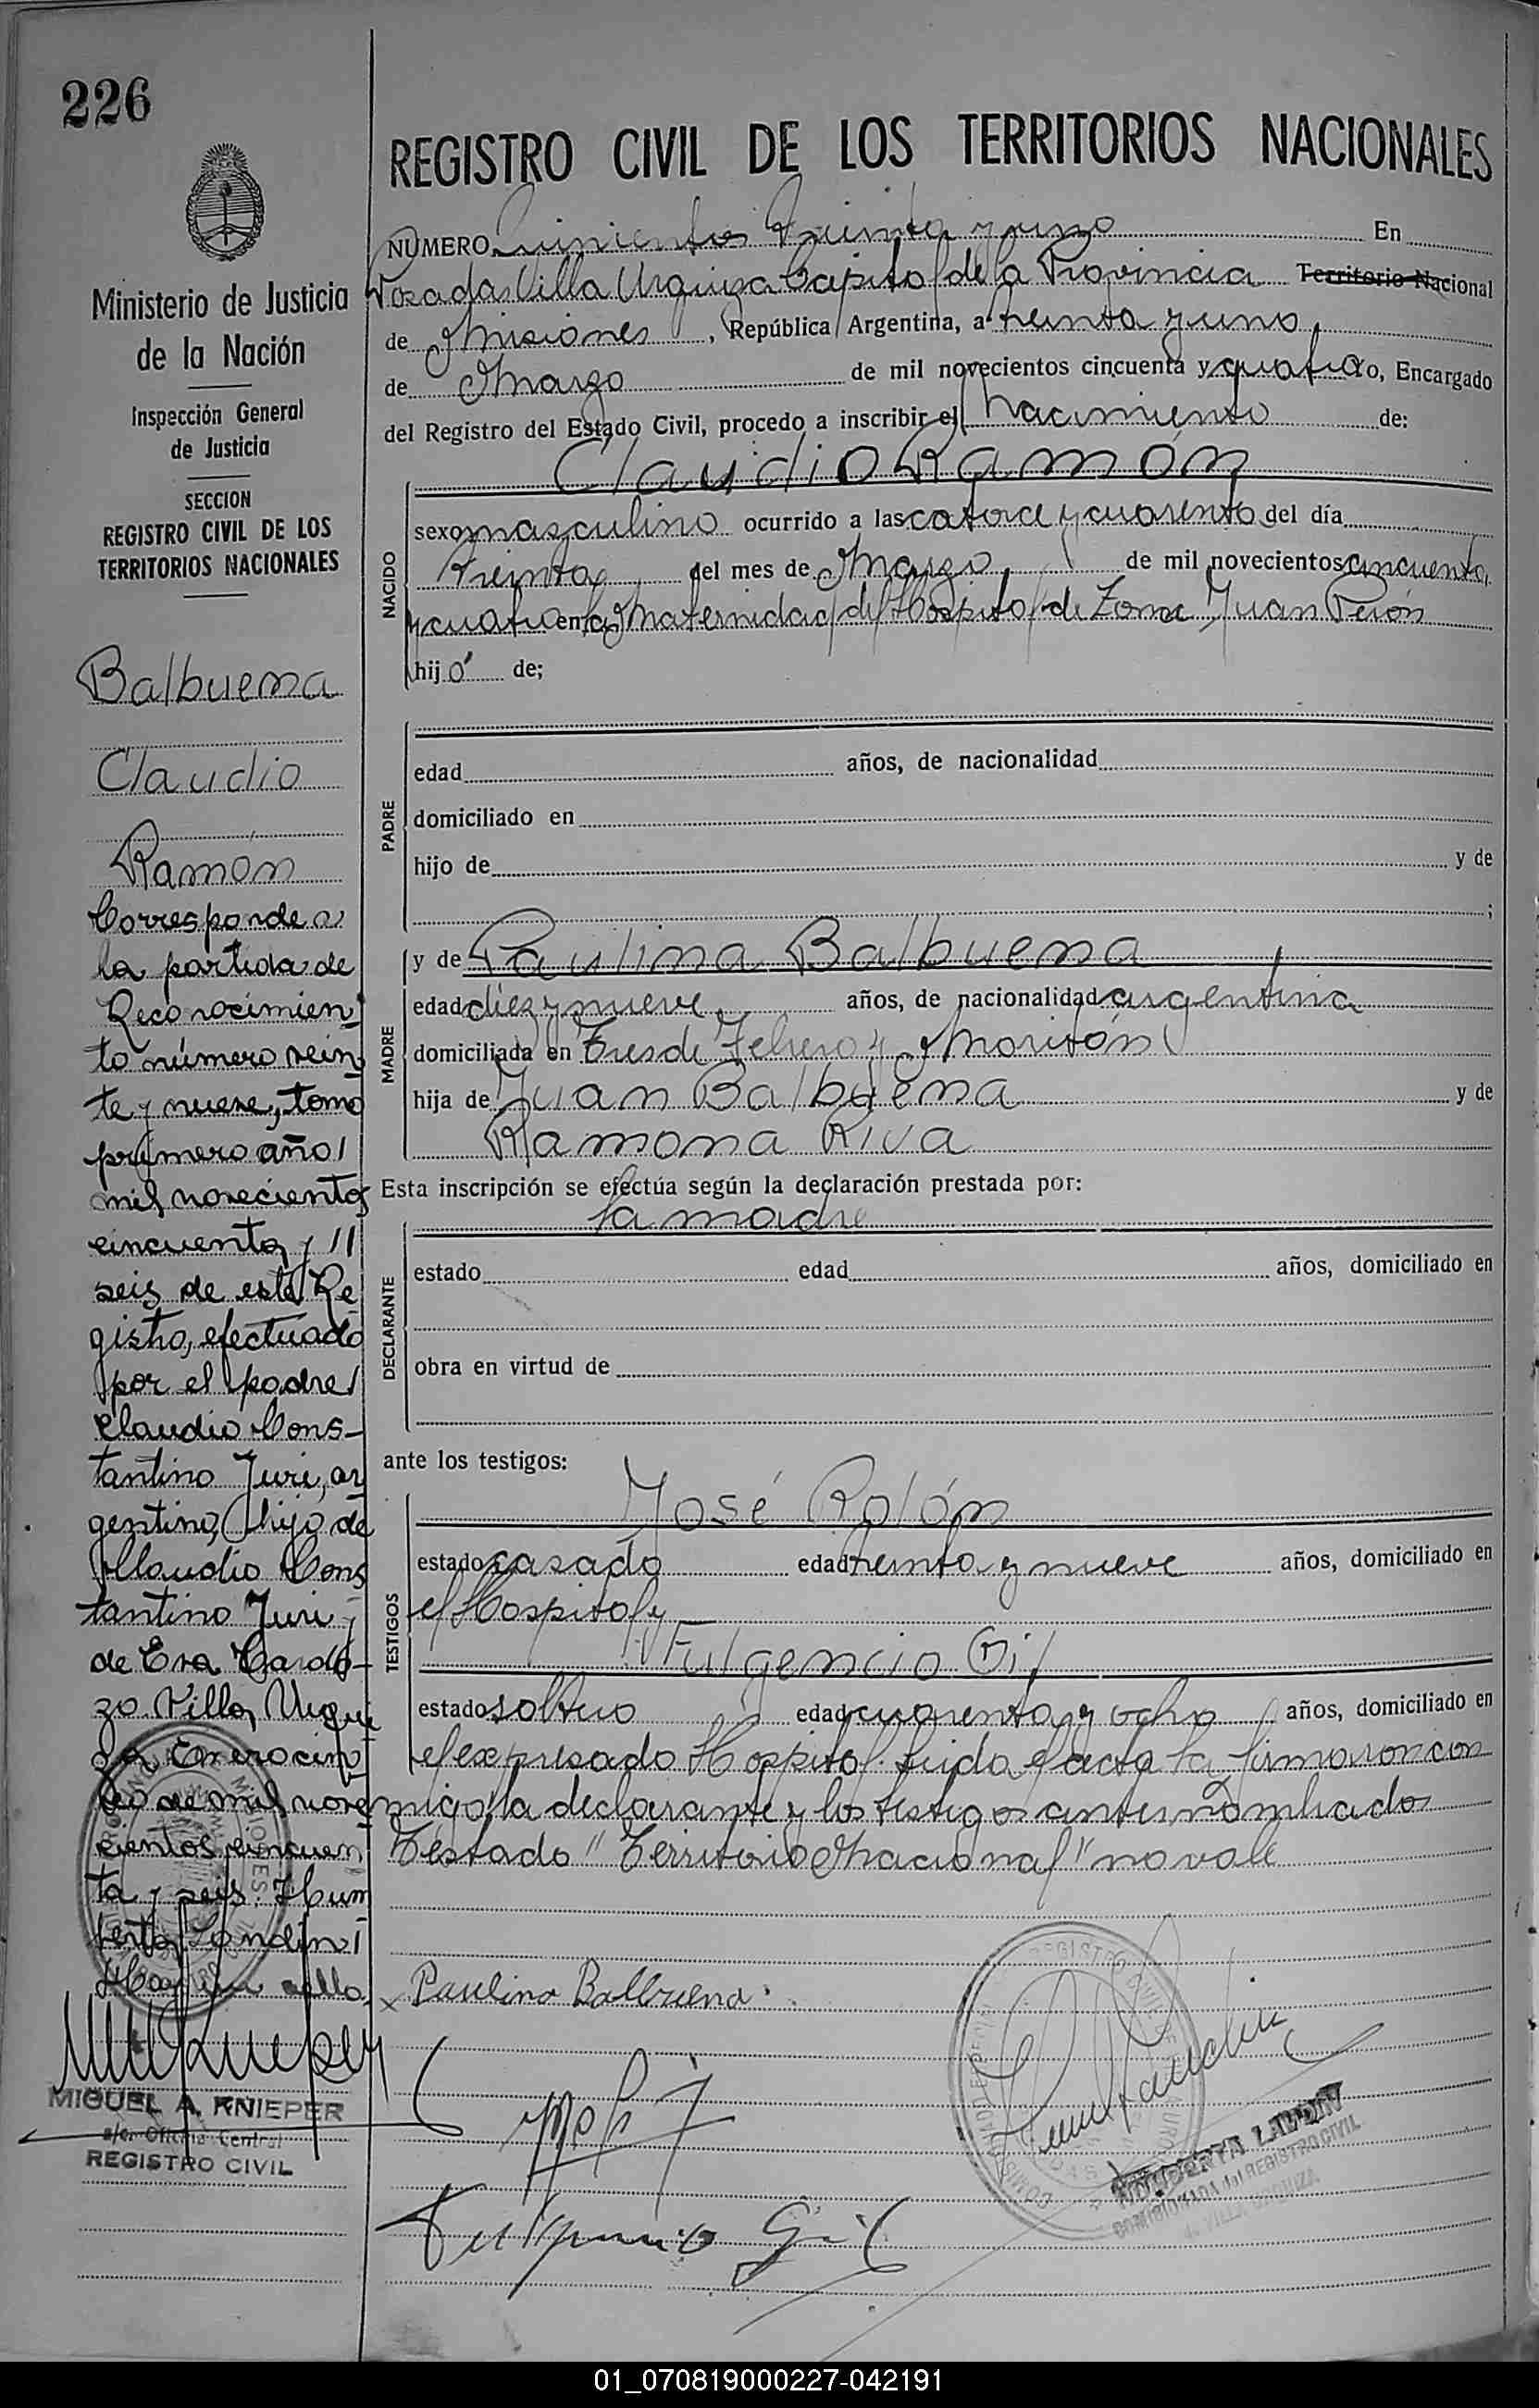 226
Ministerio de Justicia
de la Nación
Inspección General
de Justicia
SECCION
REGISTRO CIVIL DE LOS
TERRITORIOS NACIONALES
Balbuena
Claudio
Ramón
Corresponde a
la partida de
Reconocimien
to número vein
te y nueve, tomo
primero año
mil novecientos
cincuenta y
seis de este Re
gistro, efectuado
por el padre
Claudio Cons-
tantino Juri, ar
gentino, hijo de
Claudio Cons
tantino Juri y
de Eva Cardo-
zo. Villa Urqui
za Enero cin
co de mil nove
cientos cincuen
ta y seis. Hum
berta Landini
Hay un sello.
MIGUEL A. KNIEPER
a/c. Oficina Central
REGISTRO CIVIL
REGISTRO CIVIL DE LOS TERRITORIOS NACIONALES
NUMERO Quinientos Treinta y uno En
Posadas Villa Urquiza Capital de la Provincia Territorio Nacional
de Misiones, República Argentina, a treinta y uno
de Marzo de mil novecientos cincuenta y cuatro, Encargado
del Registro del Estado Civil, procedo a inscribir el Nacimiento de:
Claudio Ramón
NACIDO
sexo masculino ocurrido a las catorce y cuarenta del día
Treinta del mes de Marzo de mil novecientos cincuenta
y cuatro en la Maternidad del Hospital de Zona Juan Perón
hijo de;
PADRE
edad años, de nacionalidad
domiciliado en
hijo de y de
;
MADRE
y de Paulina Balbuena
edad diez y nueve años, de nacionalidad argentina
domiciliada en Tres de Febrero y Moritán
hija de Juan Balbuena y de
Ramona Riva
Esta inscripción se efectúa según la declaración prestada por:
DECLARANTE
la madre
estado edad años, domiciliado en
obra en virtud de
ante los testigos:
TESTIGOS
José Rolón
estado casado edad treinta y nueve años, domiciliado en
el Hospital y
Fulgencio Gil
estado soltero edad cuarenta y ocho años, domiciliado en
el expresado Hospital. Leida el acta la firmaron con
migo la declarante y los testigos antes nombrados
Testado "Territorio Nacional" no vale
x Paulina Balbuena.
Fulgencio Gil
HUMBERTA LANDINI
COMISIONADA del REGISTRO CIVIL
de VILLA URQUIZA
01_070819000227-042191